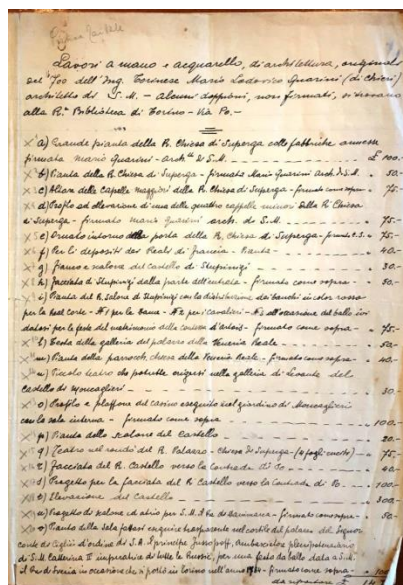 Lavori a mano e acquarello, di architettura, originali
del '700 dell'Ing. Torinese Mario Lodovico Quarini (di Chieri)
architetto di S. M. - Alcuni doppioni, non firmati, si trovano
alla R. Biblioteca di Torino - Via Po -
a) Grande pianta della R. Chiesa di Superga colle fabbriche annesse
firmata Mario Quarini - Arch. di S. M. £ 100.-
b) Pianta della R. Chiesa di Superga - firmata Mario Quarini Arch. di S. M. " 50.-
c) Altare delle capelle maggiori della R. Chiesa di Superga - firmato come sopra " 75.-
d) Profilo ed elevazione di una delle quattro capelle minori della R. Chiesa
di Superga - firmato Mario Quarini arch. di S. M. " 75.-
e) Ornato intorno della porta della R. Chiesa di Superga - firmato c. s. " 75.-
f) Per li depositi dei Reali di - Pianta " 40.-
g) Fianco e salone del castello di Stupinigi " 30.-
h) Facciata di Stupinigi dalla parte dell'entrata - firmato come sopra " 50.-
i) Pianta del R. Salone di Stupinigi con la distribuzione dei banchi in color rosso
per la Real Corte - N°1 per le Dame - N°2 per i cavalieri - N°3 all'occasione del ballo
per le feste del matrimonio della contessa d'Artois - firmato come sopra - " 75.-
l) Testa della galleria del palazzo della Veneria Reale " 50.-
m) Pianta della parrocch. chiesa della Veneria Reale - firmato come sopra - " 40.-
n) Piccolo teatro che potrebbe erigersi nella galleria di levante del
castello di Moncaglieri - " 30.-
o) Profilo e plaffone del casino eseguito nel giardino di Moncaglieri
con la sala interna - firmato come sopra " 100.-
p) Pianta dello scalone del Castello " 20.-
q) Teatro nel rondò del R. Palazzo - Chiesa di Superga (4 fogli) " 75.-
r) Facciata del R. Castello verso la Contrada di Po " 40.-
s) Progetto per la facciata del R. Castello verso la Contrada di Po " 100.-
t) Elevazione del Castello " 300.-
u) Progetto di salone ed atrio per S. M. il Re di - firmato come sopra " 50.-
v) Pianta della Sala fattasi eseguire nel cortile del palazzo del Signor
conte di d'ordine di S. E. il principe Jussopoff, ambasciatore plenipotenziario
di S. M. Catterina II imperatrice di tutte le Russie, per una festa da ballo data a S. M.
il Re di Svezia in occasione che si portò in Torino nell'anno 1784 - firmato come sopra - " 100